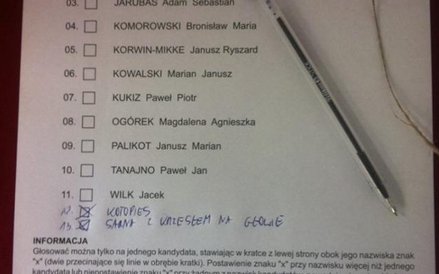 03. JARUBAS Adam Sebastian
04. KOMOROWSKI Bronisław Maria
05. KORWIN-MIKKE Janusz Ryszard
06. KOWALSKI Marian Janusz
07. KUKIZ Paweł Piotr
08. OGÓREK Magdalena Agnieszka
09. PALIKOT Janusz Marian
10. TANAJNO Paweł Jan
11. WILK Jacek
12. KOTOPIES
13. SARNA Z KRZESŁEM NA GŁOWIE
INFORMACJA
Głosować można tylko na jednego kandydata, stawiając w kratce z lewej strony obok jego nazwiska znak
"x" (dwie przecinające się linie w obrębie kratki). Postawienie znaku "x" przy nazwisku więcej niż jednego
kandydata lub niepostawienie znaku "x" przy żadnym